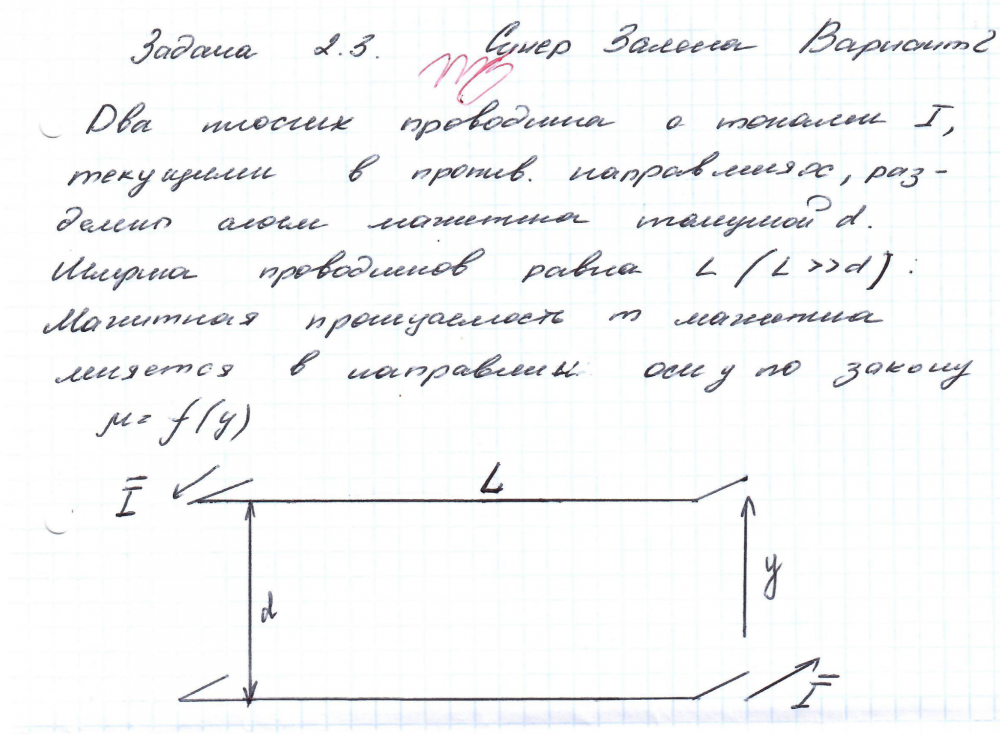 Задача 2.3. Супер Залепа Вариант 2
Два плоских проводника с токами I,
текущими в против. направлниях, раз-
делены слоем магнетика толщиной d.
Ширина проводников равна L (L >> d).
Магнитная проницаемость m магнетика
меняется в направлен. оси y по закону
μ = f(y)
I L
d
y
I